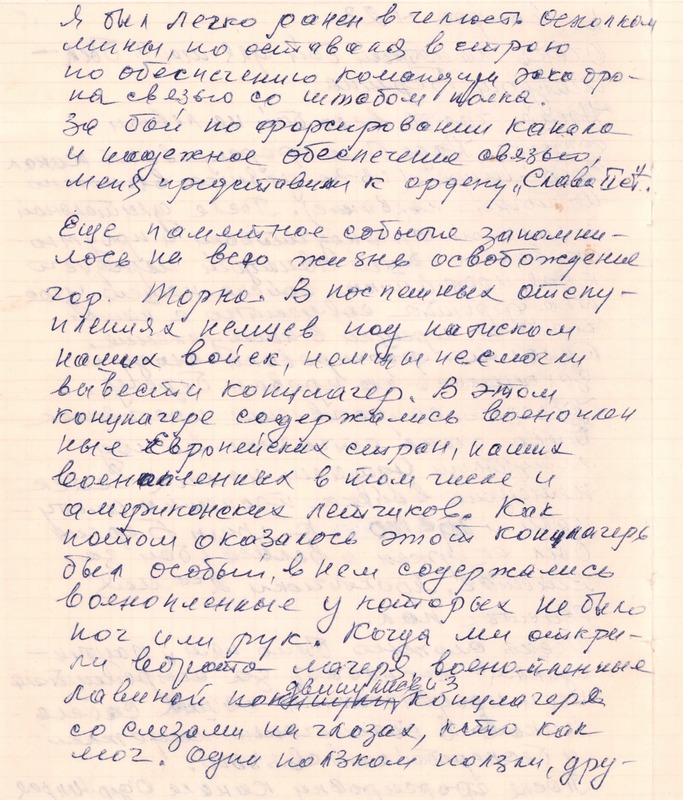 Я был легко ранен в челюсть осколком
мины, но оставался в строю
по обеспечению командира эскадро-
на связью со штабом полка.
За бой по форсированию канала
и надежное обеспечение связью,
меня представили к ордену „Слава III ст".
Еще памятное событие запомни-
лось на всю жизнь освобождение
гор. Торно. В поспешных отступ-
плениях немцев под натиском
наших войск, немцы не смогли
вывести концлагер. В этом
концлагере содержались военоплен
ные Европейских стран, наших
военопленных в том числе и
американских летчиков. Как
потом оказалось этот концлагерь
был особый, в нем содержались
военопленные у которых не было
ног или рук. Когда ми откри-
ли ворота лагеря, военопленные
лавиной двинулись из концлагеря
со слезами на глазах, кто как
мог. Одни ползком ползли, дру-